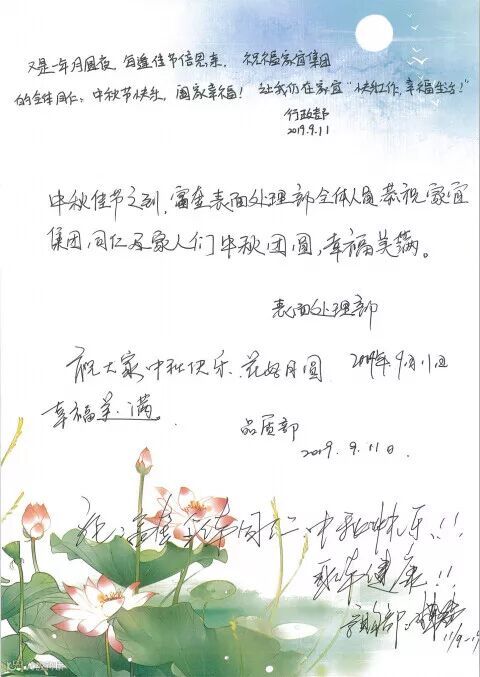 又是一年月圆夜，每逢佳节倍思亲， 祝福家宜集团
的全体同仁：中秋节快乐，阖家幸福！ 让我们在家宜“快乐工作，幸福生活！”
行政部
2019.9.11
中秋佳节之到，富奎表面处理部全体人员恭祝家宜
集团同仁及家人们中秋团圆，幸福美满。
表面处理部
祝大家中秋快乐、花好月圆 2019年9月11日
幸福美满
品质部
2019.9.11日
全体同仁：中秋快乐！！
健康！！
部
11/9-19